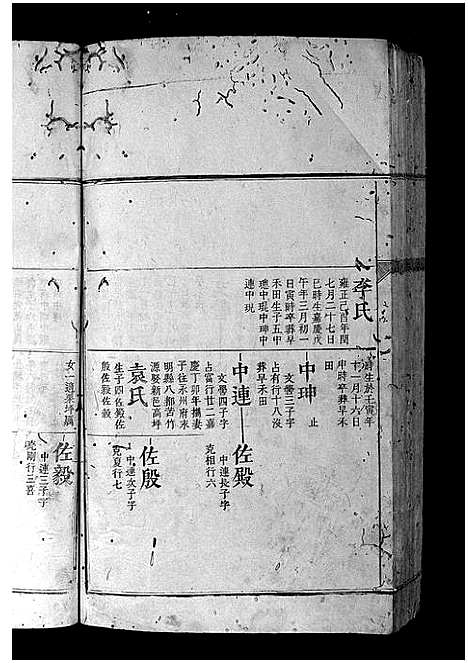 李氏
雍正己酉年閏
七月二十七日
巳時生嘉慶戊
午年三月初一
日寅時卒葬早
禾田生子五中
璁中琨中珅中
連中現
時生於壬寅年
十一月十六日
申時卒葬早禾
田
中珅
止
文譽三子字
占有行十八沒
葬早禾田
中連
文譽四子字
占富行廿二嘉
慶丁卯年攜妻
子往永州府東
明縣八都苦竹
源娶新邑高坪
袁氏
生子四佐殿佐
殷佐毅佐榖
女一適栗坪厲
佐殿
中連長子字
克相行六
佐殷
中連次子字
克夏行七
佐毅
中連三子字
克剛行三喜